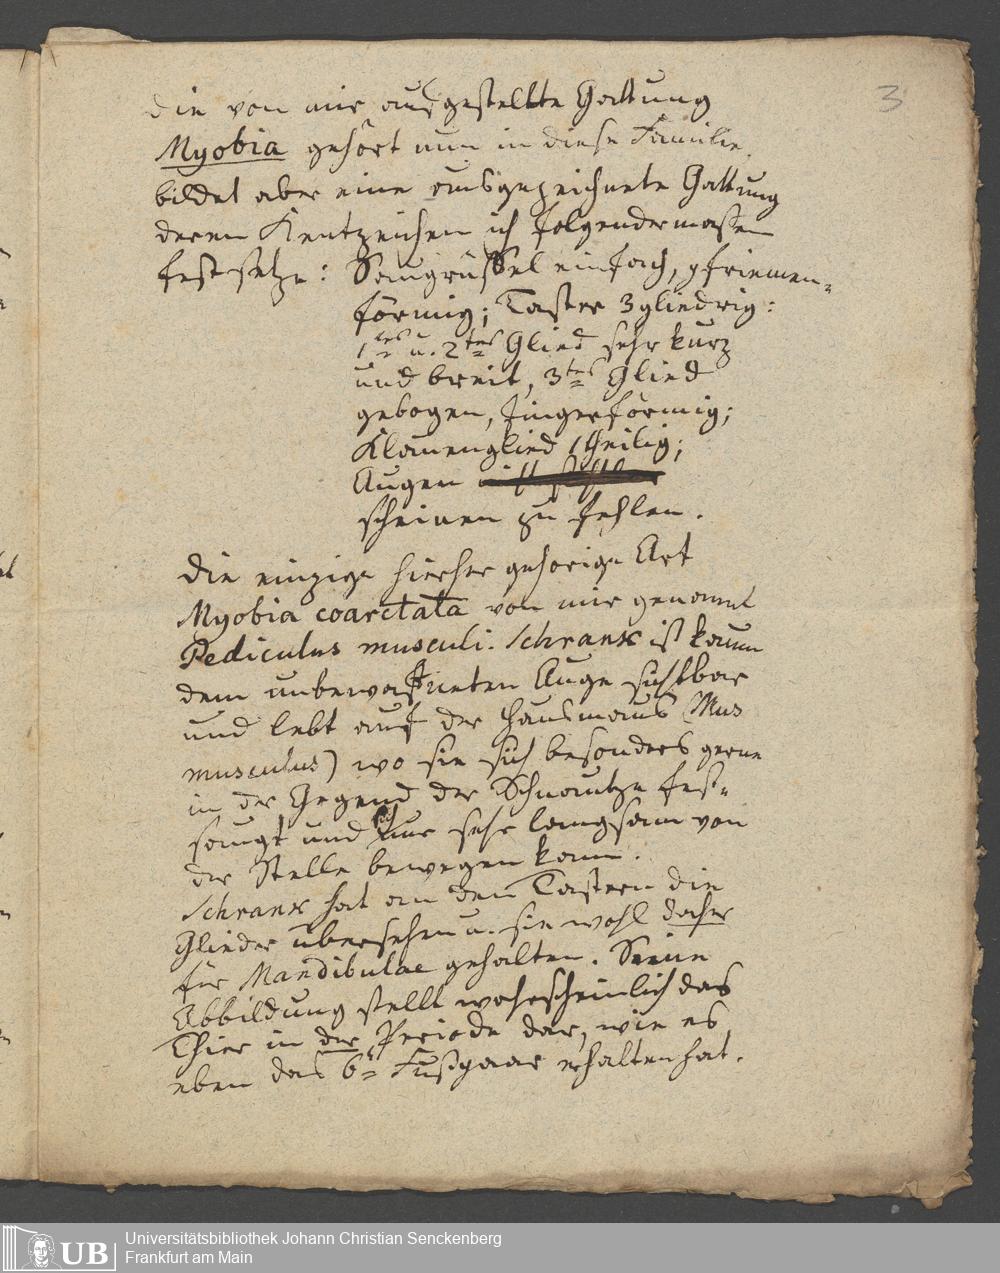 3
die von mir aufgestellte Gattung
Myobia gehört nun in diese Familie,
bildet aber eine ausgezeichnete Gattung
deren Kentzeichen ich folgendermaßen
festsetze: Saugrüssel einfach, pfriemen-
förmig; Taster 3gliedrig:
1tes u. 2tes Glied sehr kurz
und breit, 3tes Glied
gebogen, fingerförmig;
Klauenglied 1theilig;
Augen nicht sichtbar
scheinen zu fehlen.
Die einzige hierher gehörige Art
Myobia coarctata von mir genannt
Pediculus musculi. Schrank ist kaum
dem unbewaffneten Auge sichtbar
und lebt auf der Hausmaus (Mus
musculus) wo sie sich besonders gerne
in der Gegend der Schnautze fest-
saugt und sich nur sehr langsam von
der Stelle bewegen kann.
Schrank hat an den Tastern die
Glieder übersehen u. sie wohl daher
für Mandibulae gehalten. Seine
Abbildung stellt wahrscheinlich das
Thier in der Periode dar, wie es
eben das 6te Fußpaar erhalten hat.
UB
Universitätsbibliothek Johann Christian Senckenberg
Frankfurt am Main